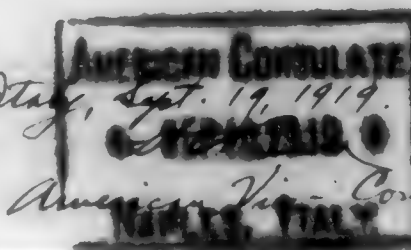 AMERICAN CONSULATE
Italy, Sept. 19, 1919.
American Vice Con
NAPLES, ITALY